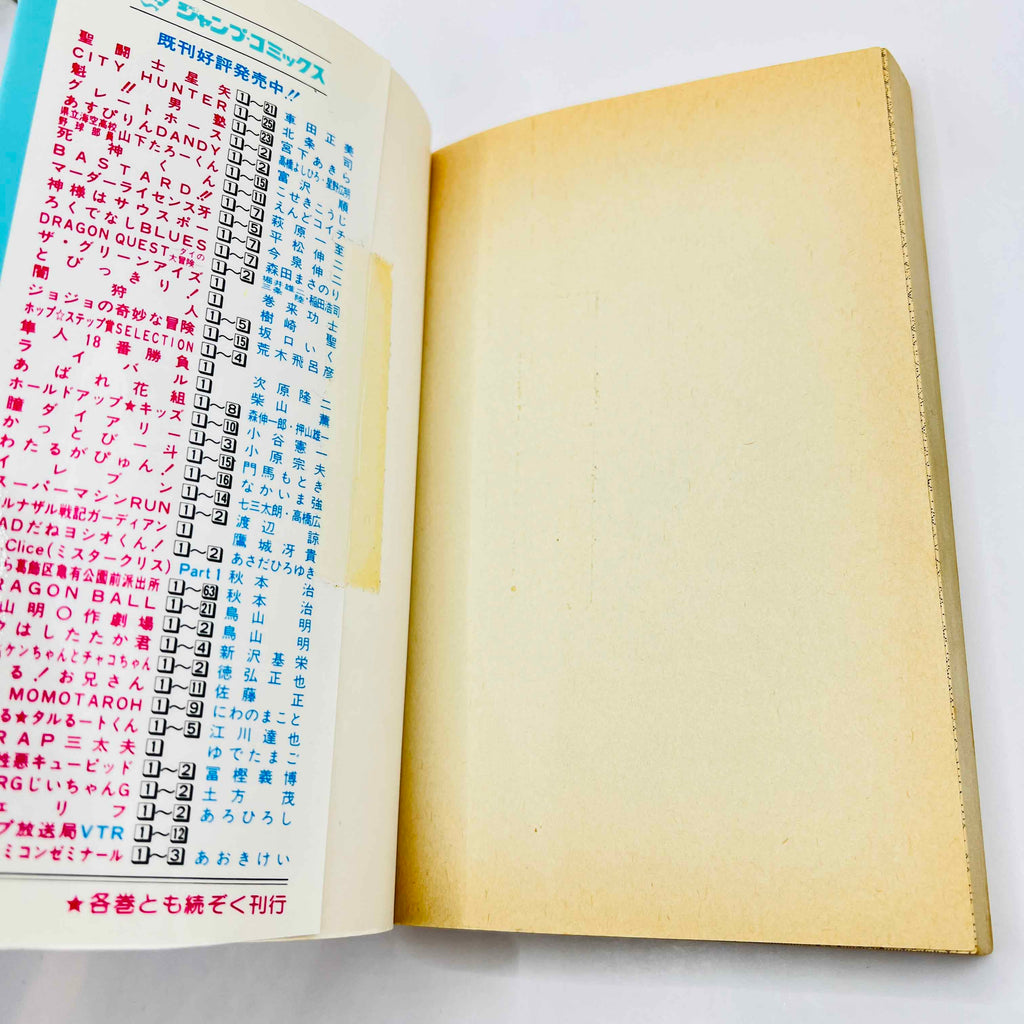 ジャンプ・コミックス
既刊好評発売中!!
聖闘士星矢 1〜21 車田正美
CITY HUNTER 1〜25 北条司
魁!!男塾 1〜23 宮下あきら
グレートホース 1〜2 高橋よしひろ・
あすぴりんDANDY 1〜2 富沢順
県立海空高校野球部員山下たろーくん 1〜15 こせきこうじ
死神くん 1〜11 えんどコイチ
BASTARD!! 1〜7 萩原一至
マーダーライセンス牙 1〜5 平松伸二
神様はサウスポー 1〜7 今泉伸二
ろくでなしBLUES 1〜7 森田まさのり
DRAGON QUEST ダイの大冒険 1〜2 堀井雄二・三条陸・稲田浩司
ザ・グリーンアイズ 1 巻来功士
とびっきり! 1 樹崎聖
闇狩人 1〜5 坂口いく
ジョジョの奇妙な冒険 1〜15 荒木飛呂彦
ホップ☆ステップ賞SELECTION 1〜4
隼人18番勝負 1 次原隆二
ライバル 1 柴山薫
あばれ花組 1〜8 森伸一郎・押山雄一
ホールドアップ★キッズ 1〜10 小谷憲一
瞳ダイアリー 1〜3 小原宗夫
かっとび一斗 1〜15 門馬もとき
わたるがぴゅん! 1〜16 なかいま強
イレブン 1〜14 七三太朗・高橋広
スーパーマシンRUN 1〜2 渡辺諒
ルナザル戦記ガーディアン 1 鷹城冴貴
ADだねヨシオくん! 1〜2 あさだひろゆき
.Clice(ミスタークリス) Part1 秋本治
ら葛飾区亀有公園前派出所 1〜63 秋本治
RAGON BALL 1〜21 鳥山明
山明○作劇場 1〜2 鳥山明
クはしたたか君 1〜4 新沢基栄
ケンちゃんとチャコちゃん 1〜2 徳弘正也
る!お兄さん 1〜11 佐藤正
MOMOTAROH 1〜9 にわのまこと
る★タルるートくん 1〜5 江川達也
RAP三太夫 1 ゆでたまご
性悪キューピッド 1〜2 冨樫義博
RGじいちゃんG 1〜2 土方茂
ェリフ 1〜2 あろひろし
プ放送局VTR 1〜12
ミコンゼミナール 1〜3 あおきけい
★各巻とも続ぞく刊行